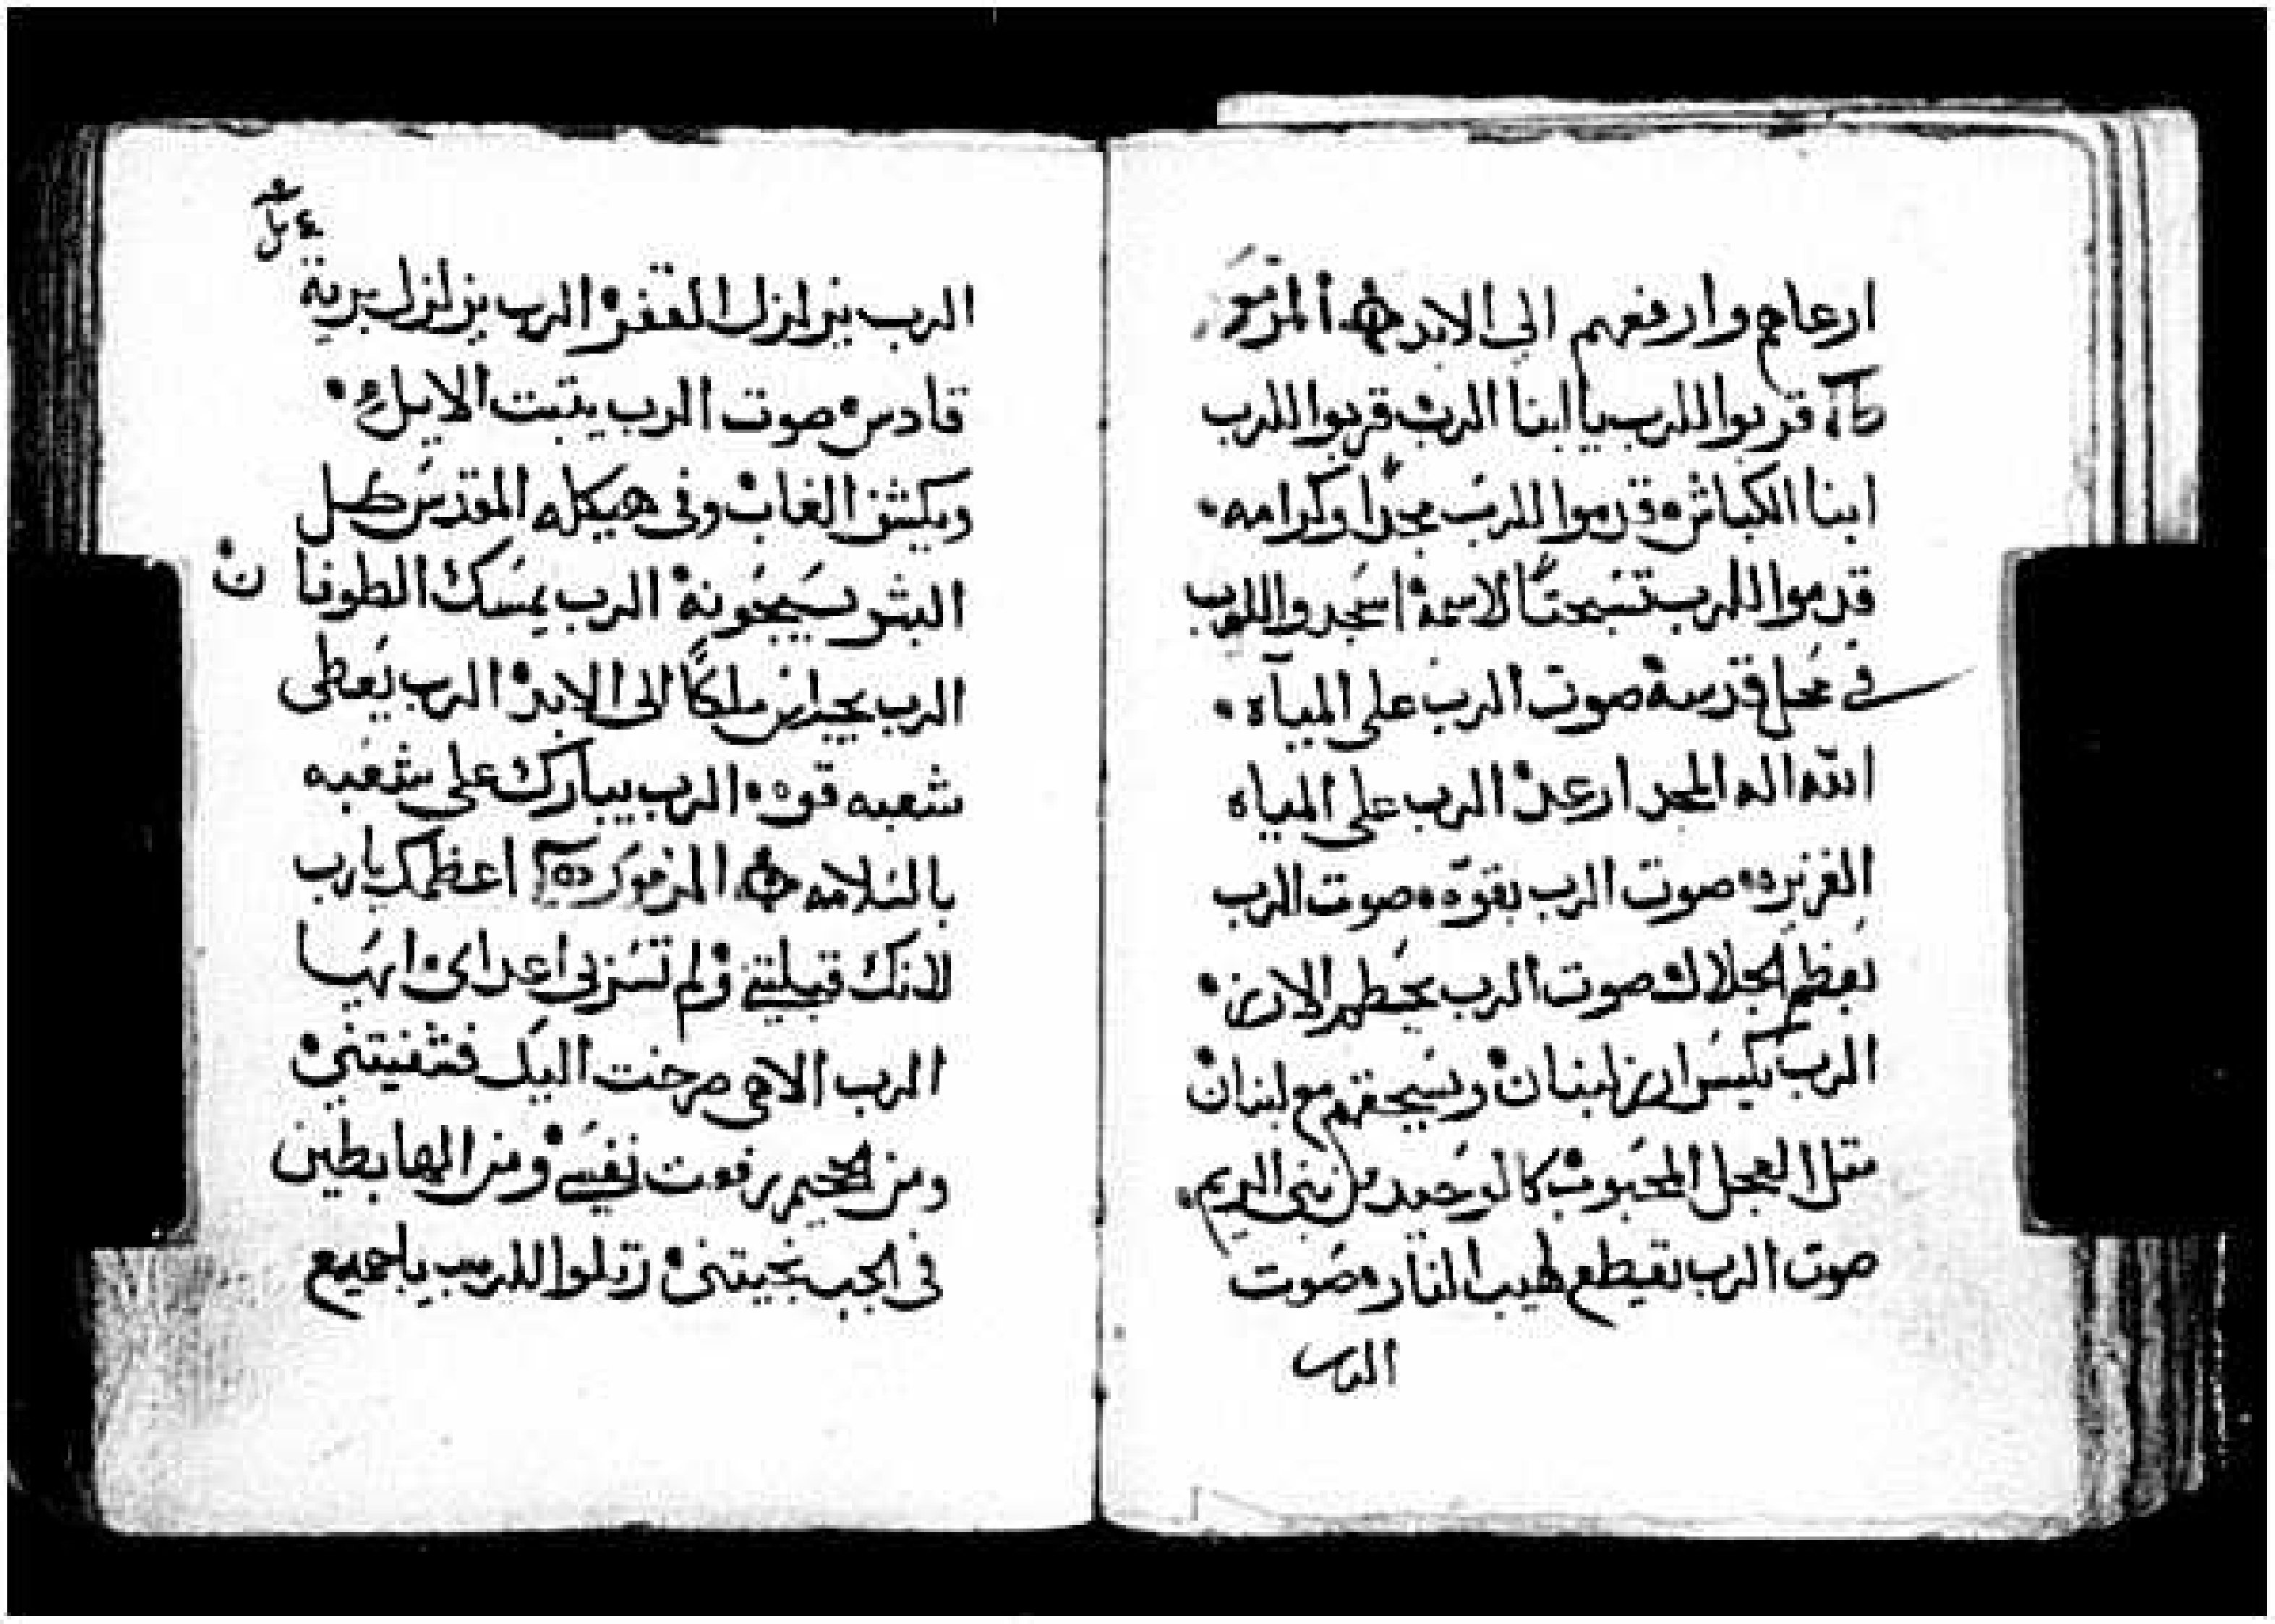 ارعاهم وارفعهم الى الابد المزمور
قربوا للرب يا ابنا الرب قربوا للرب
ابنا الكباش قدموا للرب مجدًا وكرامه
قدموا للرب تسبحتًا لاسمه اسجدوا للرب
في محل قدسه صوت الرب على المياه
الله اله المجد ارعد الرب على المياه
الغزيره صوت الرب بقوّه صوت الرب
بعظم الجلال صوت الرب يحطم الارز
الرب يكسر ارز لبنان ويسحقهم مع لبنان
مثل العجل المحبوب كالوحيد من بني الريم
صوت الرب يقطع لهيب النار صوت
الرب
الرب يزلزل القفر الرب يزلزل برية
قادس صوت الرب يثبت الايل
ويكشف الغاب وفى هيكله المقدس كل
البشر يسبحونه الرب يمسك الطوفان
الرب يجلس ملكًا الى الابد الرب يعطى
شعبه قوه الرب يبارك على شعبه
بالسلامه المزمور اعظمك يا رب
لانك قبلتني ولم تسر بي اعداى ايها
الرب الاهي صرخت اليك فشفيتني
ومن الجحيم رفعت نفسي ومن الهابطين
فى الجب نجيتني رتلوا للرب يا جميع